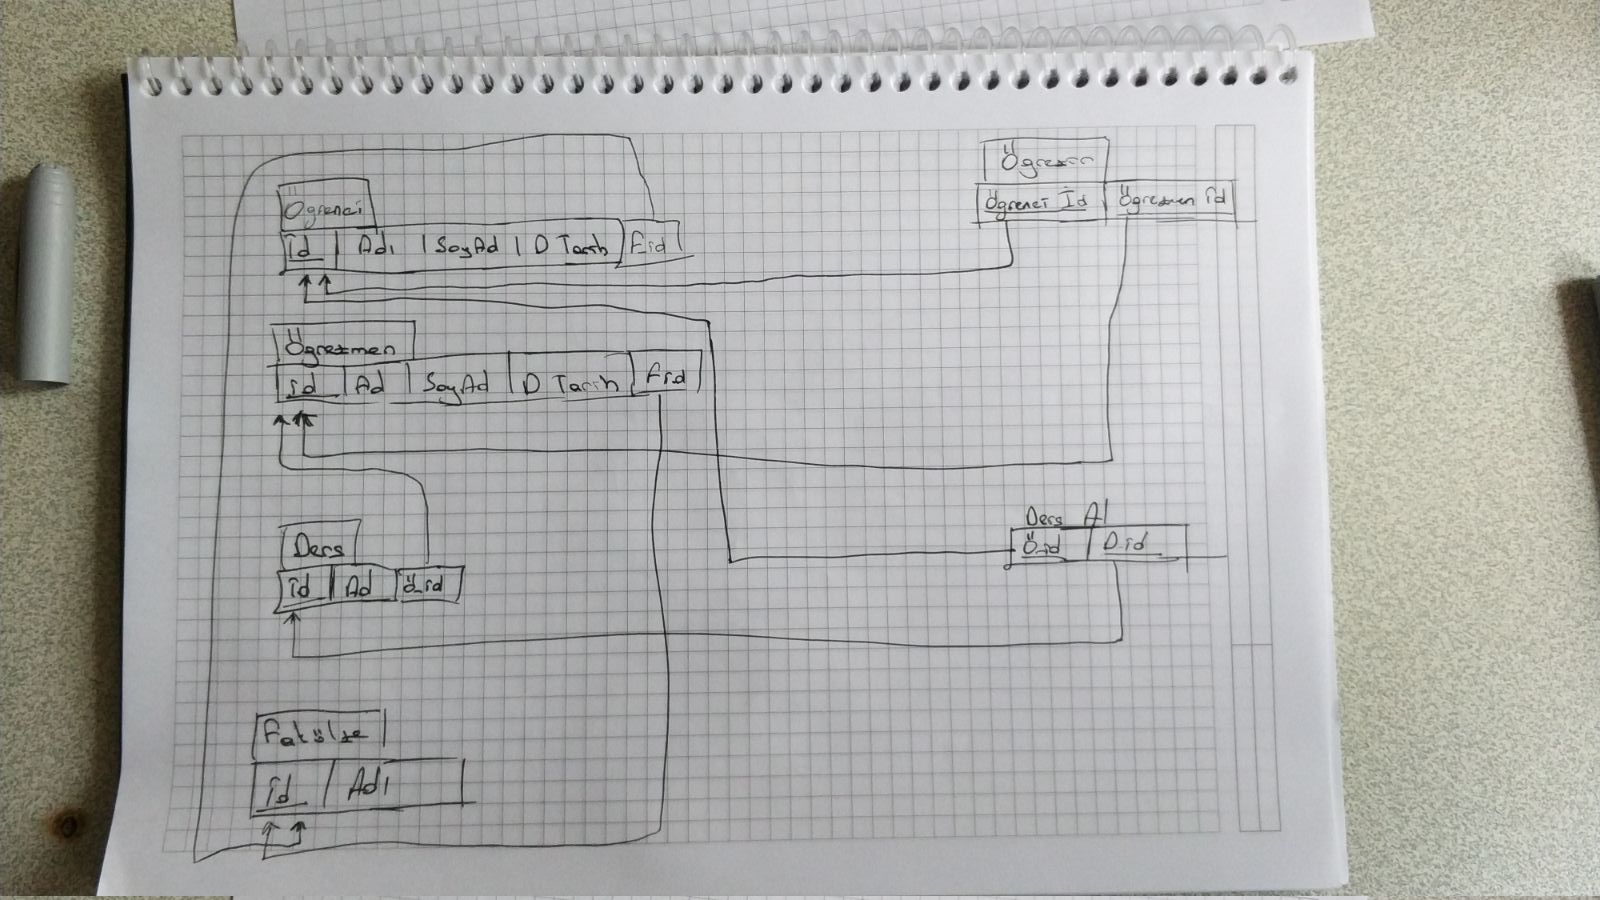 Öğrenci
id Adı SoyAd D Tarih Fid
Öğretmen
id Ad SoyAd D Tarih Fid
Ders
id Ad Ö_id
Fakülte
id Adı
Öğrenci Id Öğretmen id
Ders Al
Ö_id D_id